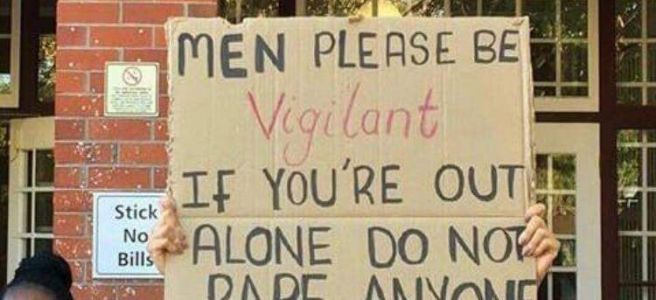 MEN PLEASE BE
Vigilant
IF YOU'RE OUT
ALONE DO NOT
RAPE ANYONE
Stick
No
Bills